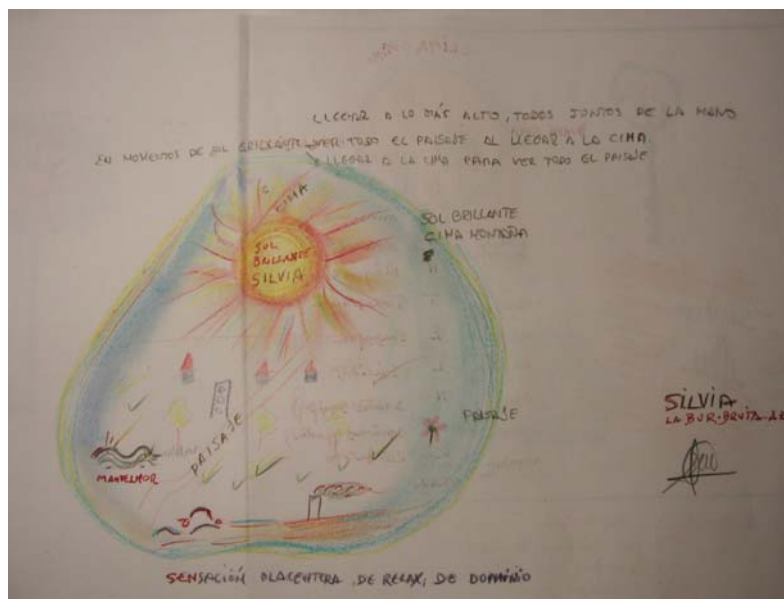 LLEGAR A LO MÁS ALTO, TODOS JUNTOS DE LA MANO
EN MOMENTOS DE SOL BRILLANTE, VER TODO EL PAISAJE AL LLEGAR A LA CIMA.
LLEGAR A LA CIMA PARA VER TODO EL PAISAJE
CIMA
SOL BRILLANTE
CIMA MONTAÑA
SOL
BRILLANTE
SILVIA
PAISAJE
PAISAJE
SILVIA
MAR
SENSACIÓN PLACENTERA, DE RELAX, DE DOMINIO